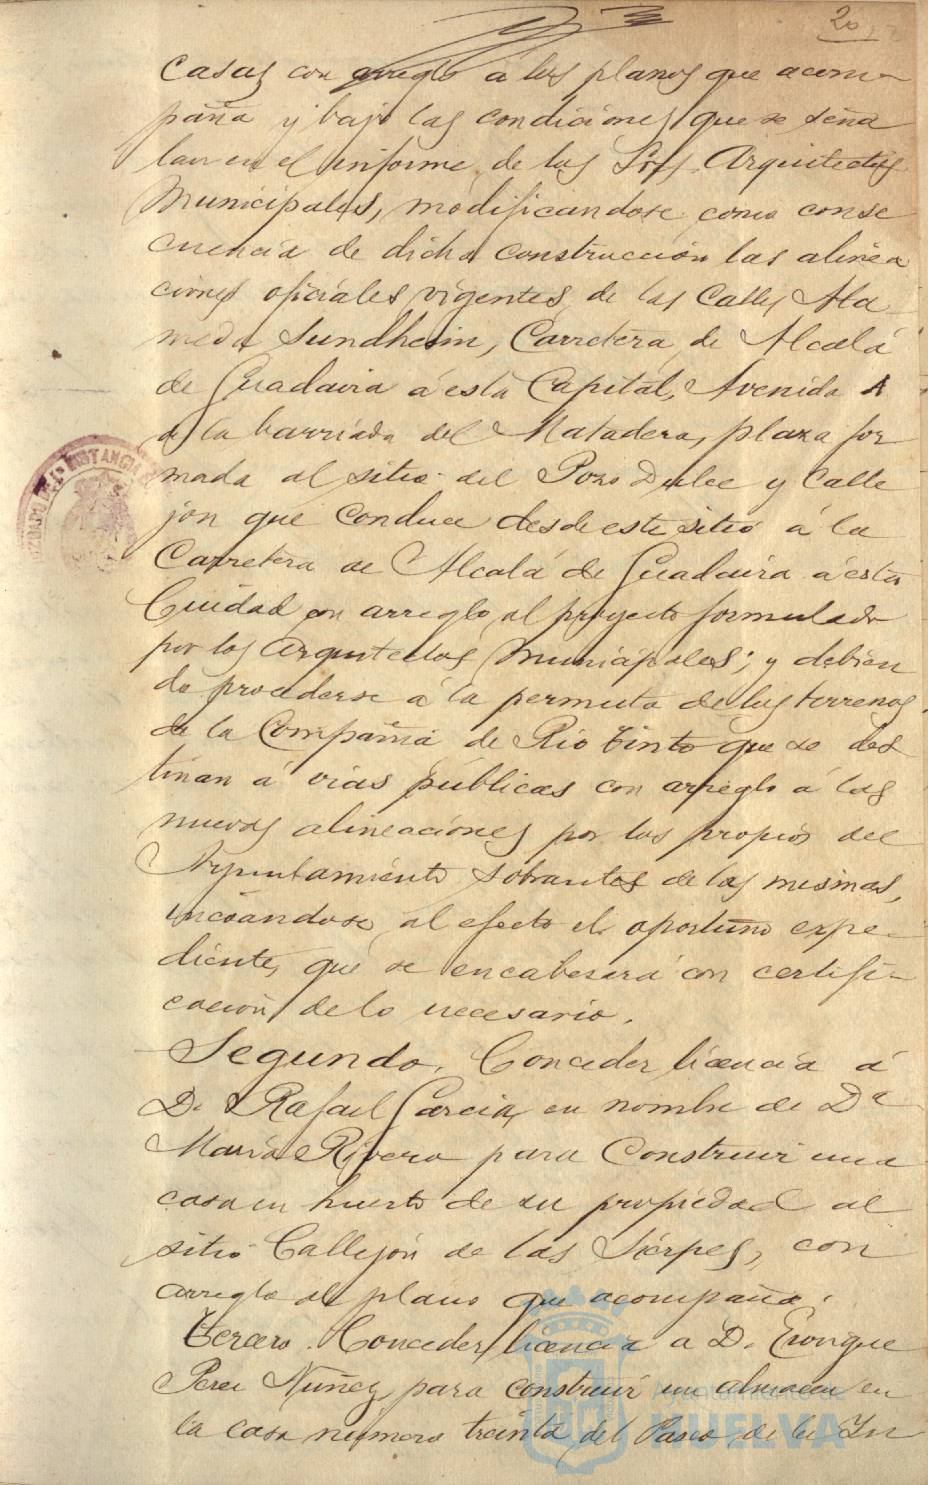 20
casas con arreglo á los planos que acom-
paña y bajo las condiciones que se seña
lan en el informe de los Srs. Arquitectos
Municipales, modificandose como conse
cuencia de dicha construcción las alinea
ciones oficiales vigentes de las Calles Ala
meda Sundheim, Carretera de Alcalá
de Guadaira á esta Capital, Avenida A
de la barriada del Matadero, plaza for
mada al sitio del Pozo Dulce y Calle
jon que conduce desde este sitio á la
Carretera de Alcalá de Guadaira á esta
Ciudad con arreglo al proyecto formulado
por los Arquitectos Municipales; y debien
do procederse á la permuta de los terrenos
de la Compañia de Rio Tinto que se des
tinan á vias públicas con arreglo á las
nuevas alineaciones por los propios del
Ayuntamiento sobrantes de las mismas,
incoandose al efecto el oportuno expe-
diente, que se encabesará con certifi-
cación de lo necesario.
Segundo. Conceder licencia á
D. Rafael Garcia, en nombre de Dª
Maria Rivero para construir una
casa en huerto de su propiedad al
sitio Callejón de las Sierpes, con
arreglo al plano que acompaña.
Tercero. Conceder licencia a D. Enrique
Perez Nuñez para construir un almacen en
la casa numero treinta del Paseo de la In
Ayuntamiento de
HUELVA